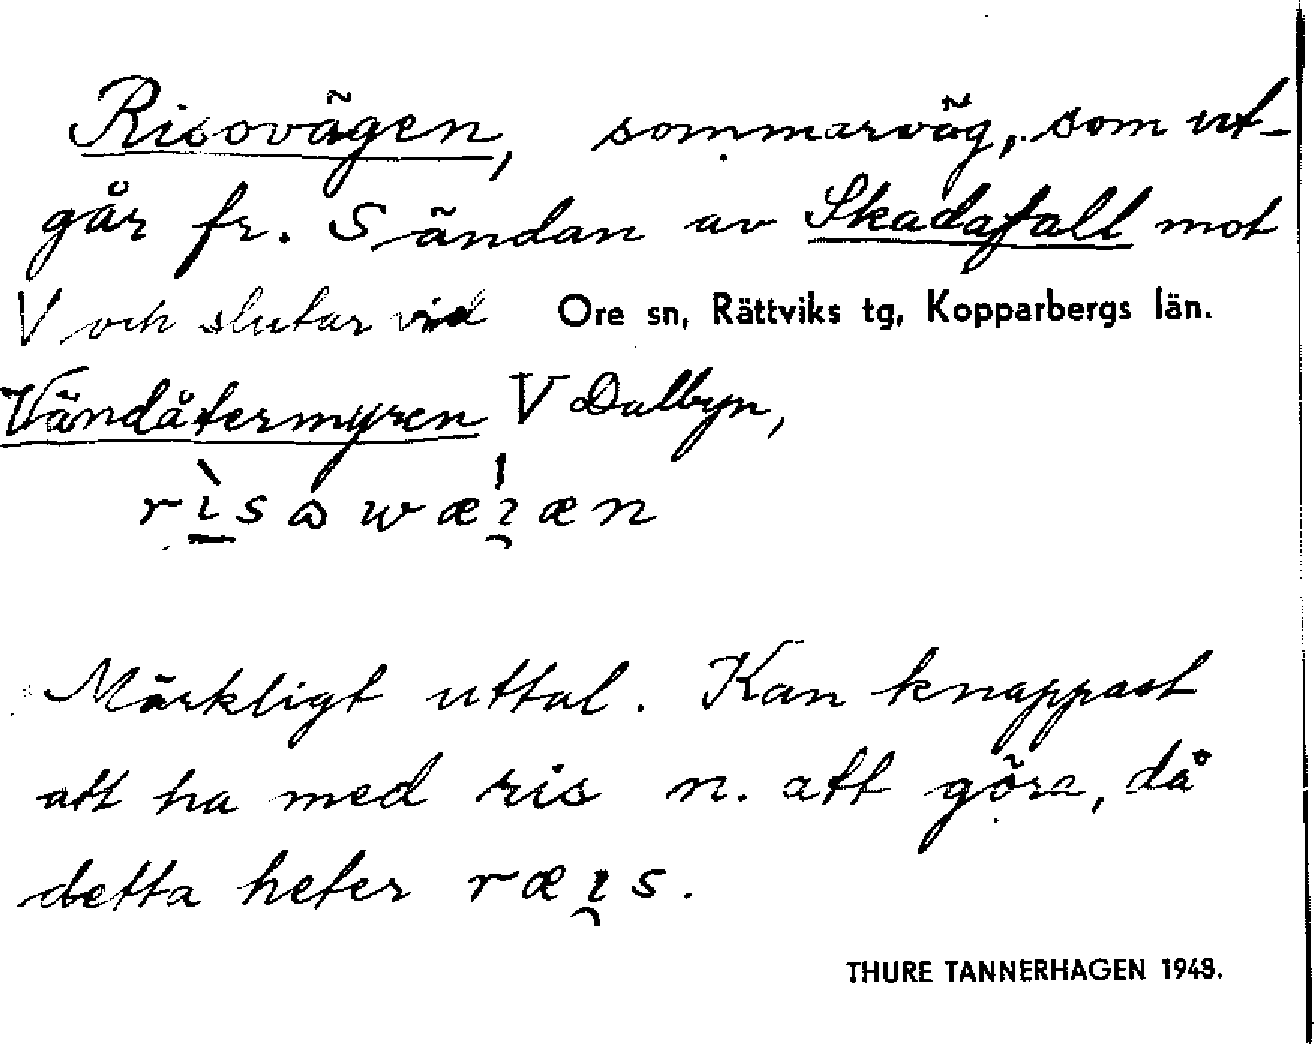 Risovägen, sommarväg, som ut-
går fr. S ändan av Skadafall mot
V och slutar vid Ore sn, Rättviks tg, Kopparbergs län.
Vändåtermyren V Dalbyn,
rìsåwæ̍ıæn
Märkligt uttal. Kan knappast
att ha med ris n. att göra, då
detta heter ræıs.
THURE TANNERHAGEN 1948.